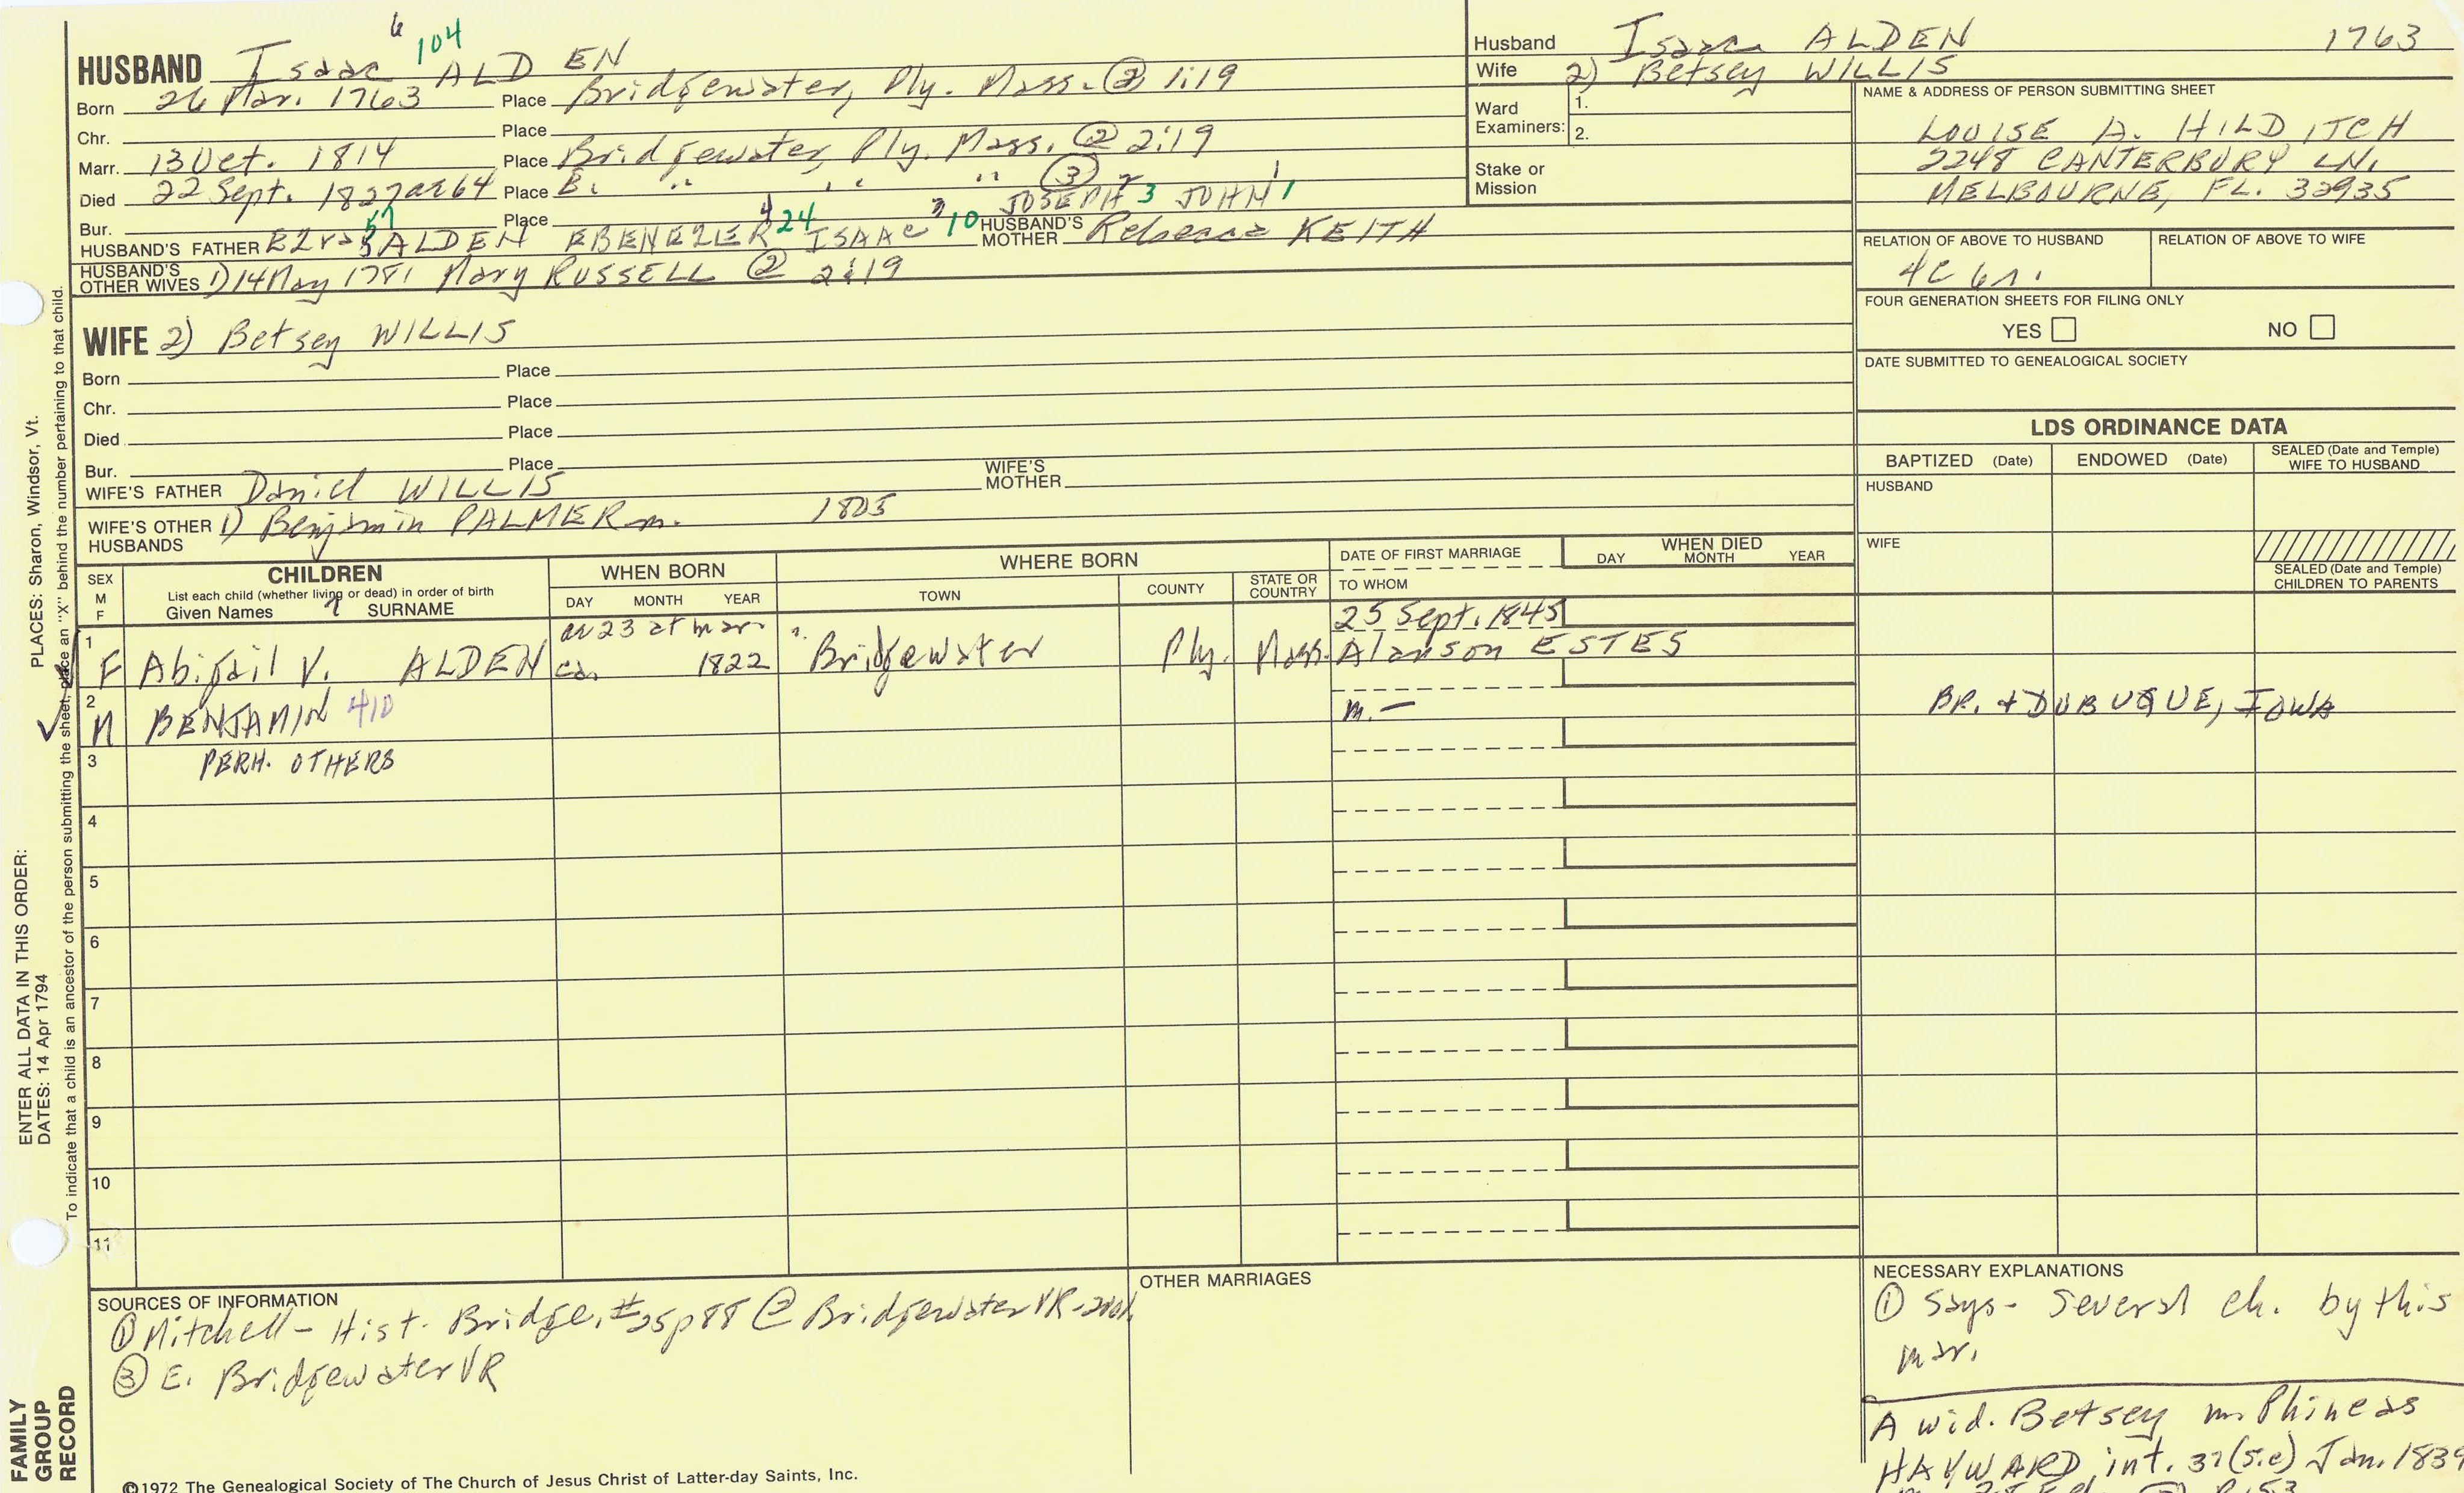 6 104
HUSBAND Isaac ALDEN
Born 26 Mar. 1763 Place Bridgewater, Ply. Mass. ② 1:19
Chr. Place
Marr. 13 Oct. 1814 Place Bridgewater, Ply. Mass. ② 2:19
Died 22 Sept. 1827 ae 64 Place E. " " " ③
Bur. Place
57 4 24 3 10 JOSEPH 2 3 JOHN 1 1
HUSBAND'S FATHER Ezra 5 ALDEN EBENEZER ISAAC HUSBAND'S MOTHER Rebecca KEITH
HUSBAND'S OTHER WIVES 1) 14 May 1781 Mary RUSSELL ② 2:19
WIFE 2) Betsey WILLIS
Born Place
Chr. Place
Died Place
Bur. Place
WIFE'S FATHER Daniel WILLIS WIFE'S MOTHER
WIFE'S OTHER HUSBANDS 1) Benjamin PALMER m. 1805
Husband Isaac ALDEN 1763
Wife 2) Betsey WILLIS
Ward Examiners: 1.
2.
Stake or Mission
NAME & ADDRESS OF PERSON SUBMITTING SHEET
LOUISE A. HILDITCH
2248 CANTERBURY LN.
MELBOURNE, FL. 32935
RELATION OF ABOVE TO HUSBAND RELATION OF ABOVE TO WIFE
4C 6r.
FOUR GENERATION SHEETS FOR FILING ONLY
YES NO
DATE SUBMITTED TO GENEALOGICAL SOCIETY
LDS ORDINANCE DATA
BAPTIZED (Date) ENDOWED (Date) SEALED (Date and Temple) WIFE TO HUSBAND
HUSBAND
WIFE
SEALED (Date and Temple) CHILDREN TO PARENTS
SEX M F
CHILDREN
List each child (whether living or dead) in order of birth
Given Names 7 SURNAME
WHEN BORN
DAY MONTH YEAR
WHERE BORN
TOWN COUNTY STATE OR COUNTRY
DATE OF FIRST MARRIAGE
TO WHOM
WHEN DIED
DAY MONTH YEAR
1 ae 23 at mar. 25 Sept. 1845
F Abigail V. ALDEN ca. 1822 Bridgewater Ply. Mass. Alanson ESTES
2
M BENJAMIN 410 m. — BR. + DUBUQUE, IOWA
3 PERH. OTHERS
4
5
6
7
8
9
10
11
SOURCES OF INFORMATION
① Mitchell - Hist. Bridge. #35 p88 ② Bridgewater VR-2vol.
③ E. Bridgewater VR
OTHER MARRIAGES
NECESSARY EXPLANATIONS
① Says - Several ch. by this
mar.
A wid. Betsey m. Phineas
HAYWARD int. 37 (sic) Jan. 1839
©1972 The Genealogical Society of The Church of Jesus Christ of Latter-day Saints, Inc.
ENTER ALL DATA IN THIS ORDER:
DATES: 14 Apr 1794
PLACES: Sharon, Windsor, Vt.
To indicate that a child is an ancestor of the person submitting the sheet, place an "X" behind the number pertaining to that child.
FAMILY
GROUP
RECORD